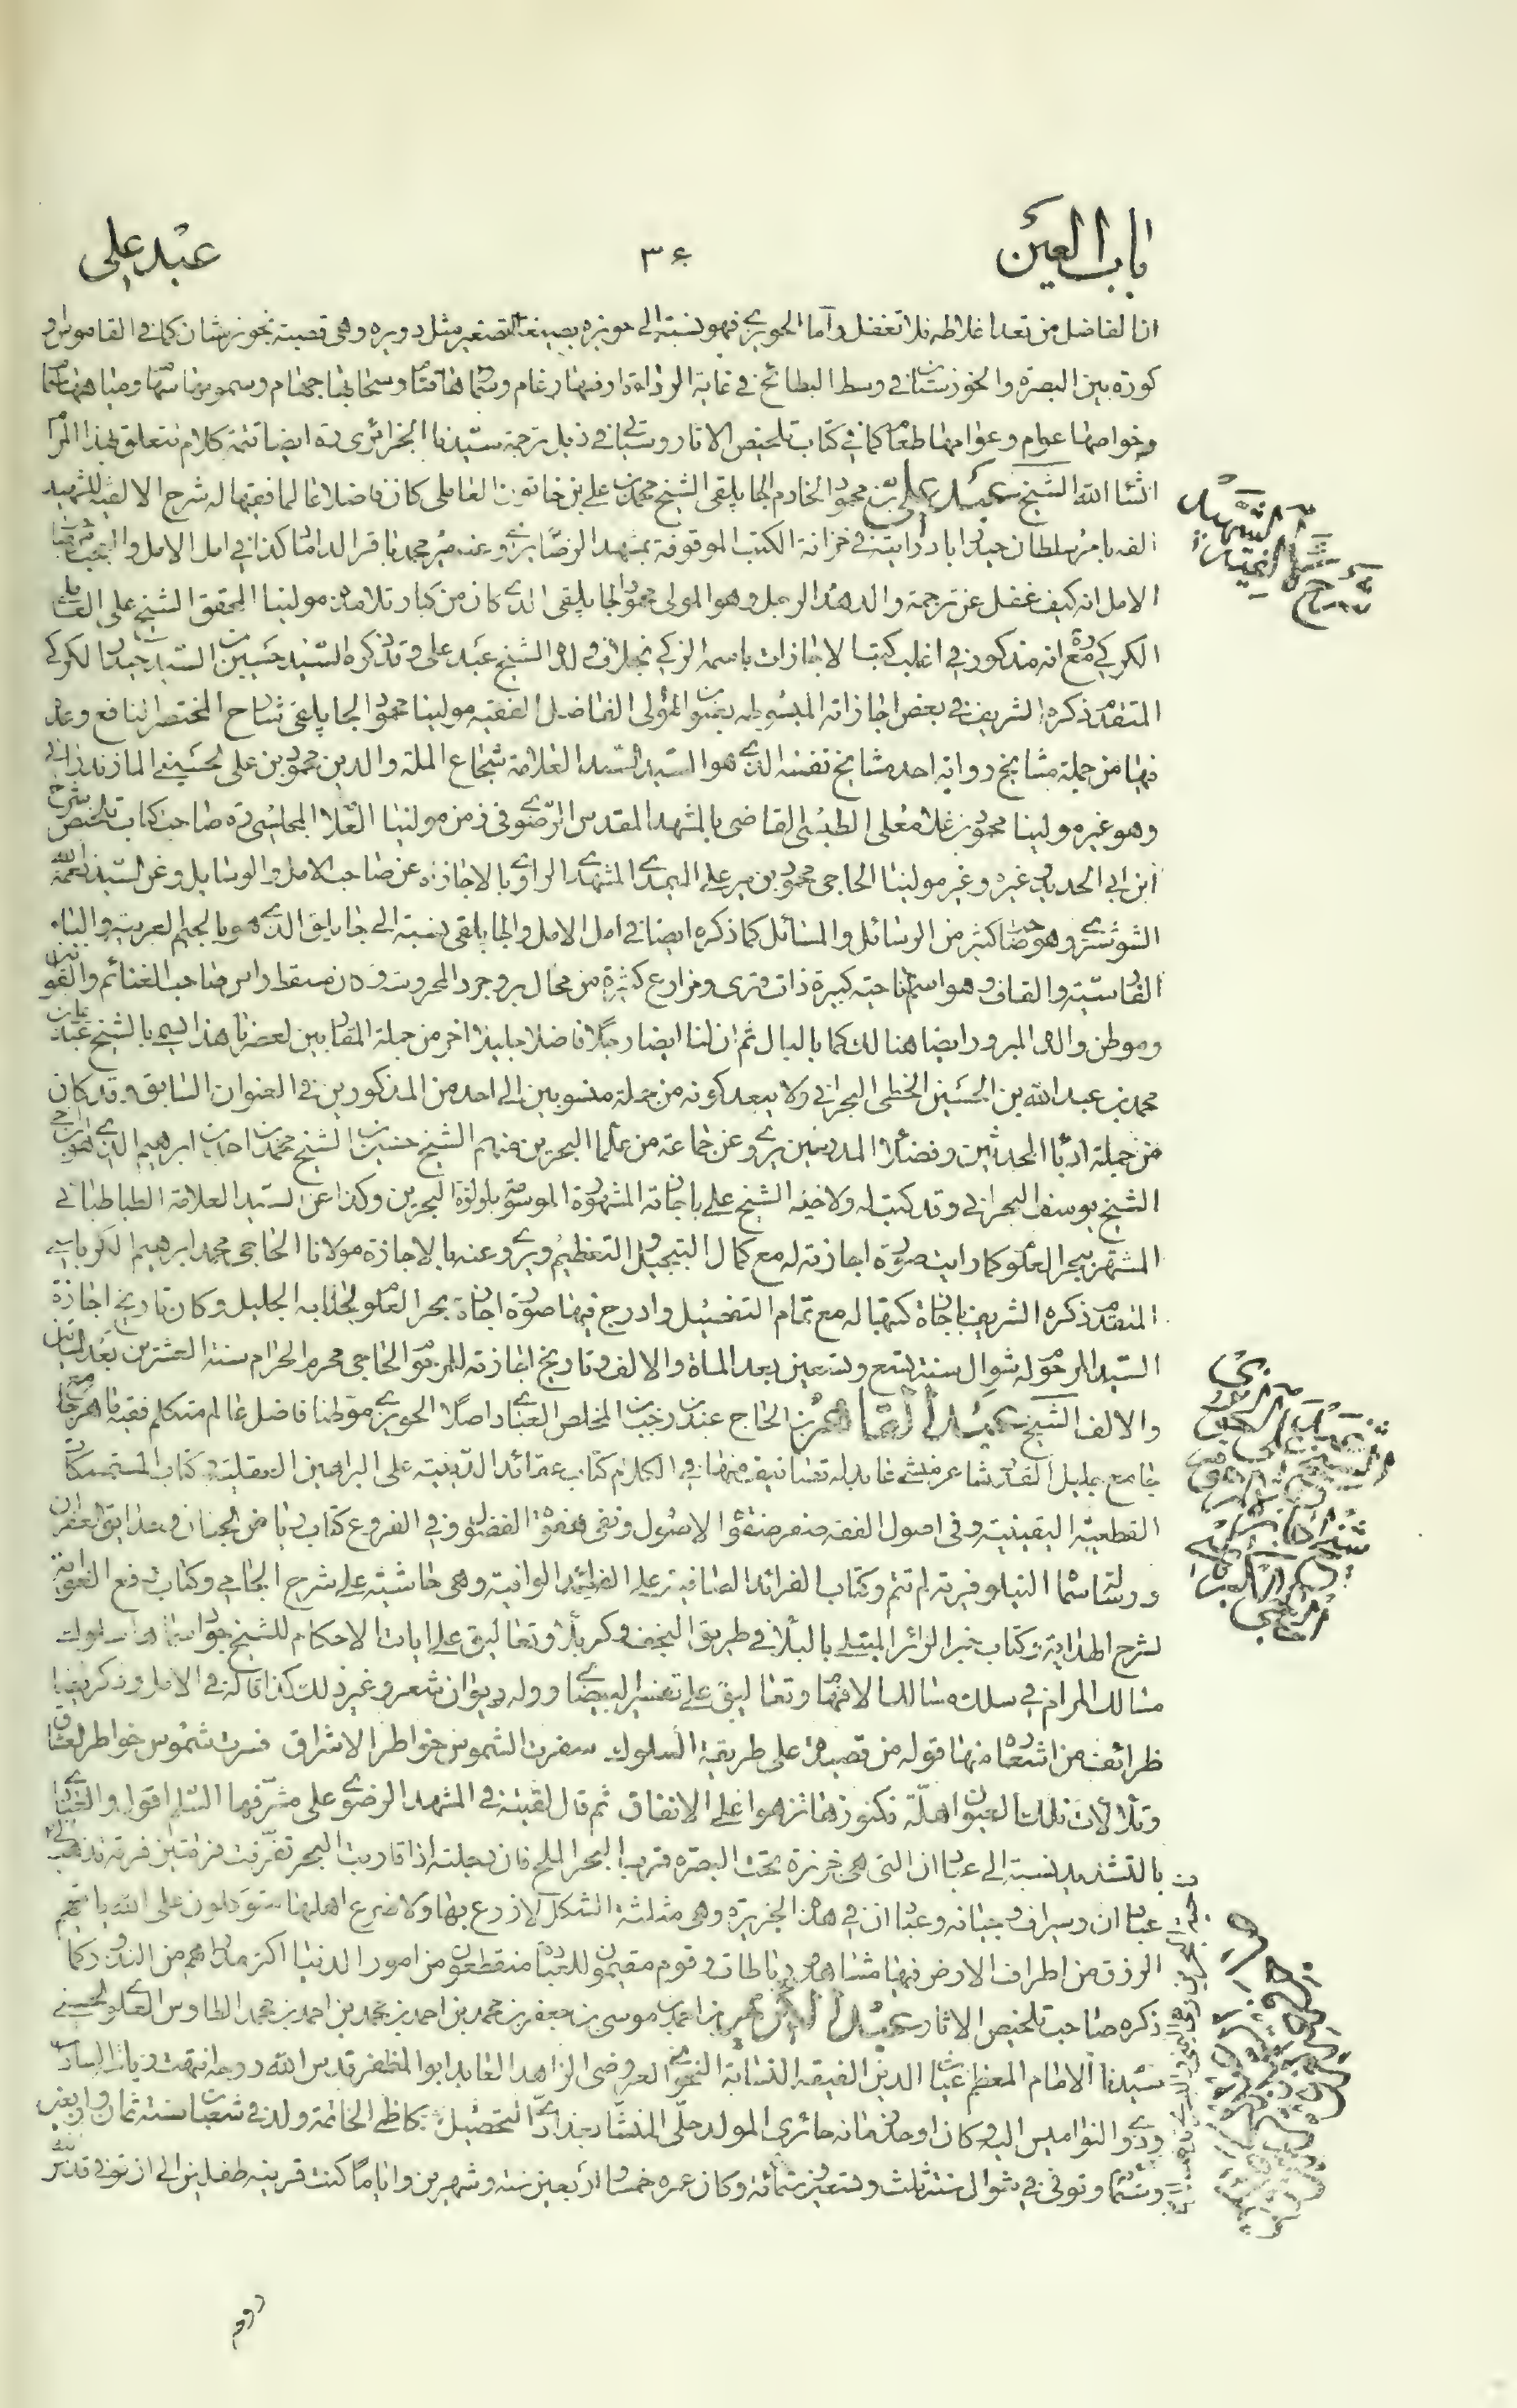 باب العين
۳۶
عبد علي
ان الفاضل من تعد اغلاطه فلا تغفل واما الحويزي فهو نسبة الى حويزه بصيغة التصغير مثل دويره وهي قصبة بخوزستان كما في القاموس و
كورة بين البصرة والخوزستان في وسط البطائح في غاية الرداءة ارضها رغام وسماؤها قتام وسحابها جهام وسمومها سهام ومياهها سمام
وخواصها عوام وعوامها طغام كما في كتاب تلخيص الاثار وسيأتي في ذيل ترجمة سيدنا الجزائري ره ايضا تتمة كلام تتعلق بهذا المرام
انشاء الله الشيخ عبد علي بن محمود الخادم الجابلقي الشيخ محمد بن علي بن خاتون العاملي كان فاضلا عالما فقيها له شرح الالفية للشهيد
الفه بامر سلطان حيدر اباد رايته في خزانة الكتب الموقوفة بمشهد الرضا يروي عنه مير محمد باقر الداماد كذا في امل الامل والعجب من صاحب
الامل انه كيف غفل عن ترجمة والد هذا الرجل وهو المولى محمود الجابلقي الذي كان من كبار تلامذة مولينا المحقق الشيخ علي العاملي
الكركي ره مع انه مذكور في اغلب كتب الاجازات باسمه الزكي بخلاف ولده الشيخ عبد علي وقد ذكره السيد حسين بن السيد حيدر الكركي
المتقدم ذكره الشريف في بعض اجازاته المبسوطه بعنوان المولى الفاضل الفقيه مولينا محمود الجابلقي شارح المختصر النافع وعد
فيها من جملة مشايخ روايته احد مشايخ نفسه الذي هو السيد السند العلامة شجاع الملة والدين محمود بن علي الحسيني المازندراني
وهو غير مولينا محمود بن غلامعلي الطبسي القاضي بالمشهد المقدس الرضوي في زمن مولينا العلامة المجلسي ره صاحب كتاب تلخيص شرح
ابن ابي الحديد وغيره وغير مولينا الحاجي محمود بن مير علي الميمدي المشهدي الراوي بالاجازة عن صاحب الامل والوسايل وعن السيد نعمة الله
الشوشتري وهو صاحب كثير من الرسائل والمسائل كما ذكره ايضا في امل الامل والجابلقي نسبة الى جابلق الذي هو بالجيم العربية والباء
الفارسية والقاف وهو اسم ناحية كبيرة ذات قرى ومزارع كثيرة من محال بروجرد المحروسة وكان مسقط راس صاحب الغنائم والقوانين
وموطن والده المبرور ايضا هنالك كما بالبال ثم ان لنا ايضا رجلا فاضلا جليلا اخر من جملة المقاربين لعصرنا هذا يسمى بالشيخ عبد علي بن
محمد بن عبد الله بن الحسين الخطي البحراني ولا يبعد كونه من جملة منسوبين الى احد من المذكورين في العنوان السابق وقد كان
من جملة ادباء المحدثين وفضلاء المدرسين يروي عن جماعة من علماء البحرين منهم الشيخ حسين بن الشيخ محمد بن احمد بن ابرهيم الذي هو ابن اخي
الشيخ يوسف البحراني وقد كتب له ولاخيه الشيخ علي باجازته المشهورة الموسومة بلؤلؤة البحرين وكذا عن السيد العلامة الطباطبائي
المشتهر ببحر العلوم كما رايت صورة اجازته له مع كمال التبجيل والتعظيم ويروي عنه بالاجازة مولانا الحاجي محمد ابرهيم الكرباسي
المتقدم ذكره الشريف باجازة كتبها له مع تمام التفضيل وادرج فيها صورة اجازة بحر العلوم لجنابه الجليل وكان تاريخ اجازة
السيد المرحوم له شوال سنة تسع وتسعين بعد الماة والالف وتاريخ اجازته للمرحوم الحاجي محرم الحرام سنة العشرين بعد المأتين
والالف الشيخ عبد القاهر بن الحاج عبد بن رجب بن المخلص العبادي اصلا الحويزي موطنا فاضل عالم متكلم فقيه ماهر محقق
جامع جليل القدر شاعر منشي عابد له تصانيف منها في الكلام كتاب عقائد الدينية على البراهين العقلية وكتاب المستمسكات
القطعية اليقينية وفي اصول الفقه صفو صفوة الاصول ونفي هفوة الفضول وفي الفروع كتاب رياض الجنان وحدايق الغفران
ورسالة اسماها النيلوفرية لم تتم وكتاب الفرائد الصافية على الفوائد الوافية وهي حاشية على شرح الجامي وكتاب رفع الغواية
بشرح الهداية وكتاب خير الزائر المبتلى بالبلاء في طريق النجف وكربلاء وتعاليق على ايات الاحكام للشيخ جواد
مسالك المرام في سلك مسالك الافهام وتعاليق على تفسير البيضاوي وله ديوان شعر وغير ذلك كذا قاله في الامل وذكر ايضا
ظرائف من اشعاره منها قوله من قصيدة على طريقة السلوك سفرت الشموس خواطر الاشراق فسرت شموس خواطر العشاق
وتلألأت تلك العيون اهلة فكنوزها تزهو على الانفاق ثم قال لقيته في المشهد الرضوي على مشرفها السلم اقول والعبادي
بالتشديد نسبة الى عبادان التى هي جزيرة تحت البصره قرب البحر الملح فان دجلته اذا قاربت البحر تفرقت فرقتين فرقة تذهب الى
عبادان وسيراف وجنابه وعبادان في هذه الجزيرة وهي مثلثة الشكل لا زرع بها ولا ضرع اهلها متوكلون على الله ياتيهم
الرزق من اطراف الارض فيها مشاهد ورباطات وقوم مقيمون للعبادة منقطعون من امور الدنيا اكثر مددهم من النذور كما
ذكره صاحب تلخيص الاثار عبد الكريم بن احمد بن موسى بن جعفر بن محمد بن احمد بن محمد بن احمد بن محمد الطاوس العلوي الحسني
سيدنا الامام المعظم غياث الدين الفقيه النسابة النحوي العروضي الزاهد العابد ابو المظفر قدس الله روحه انتهت رياسة السادات
وذوي النواميس اليه وكان اوحد زمانه حائري المولد حلي المنشأ بغدادي التحصيل كاظمي الخاتمة ولد في شعبان سنة ثمان واربعين
وستمائة وتوفي في شوال سنة ثلث وتسعين وستمائة وكان عمره خمسا واربعين سنة وشهرين واياما كنت قرينه طفلين الى ان توفي قدس الله
روم